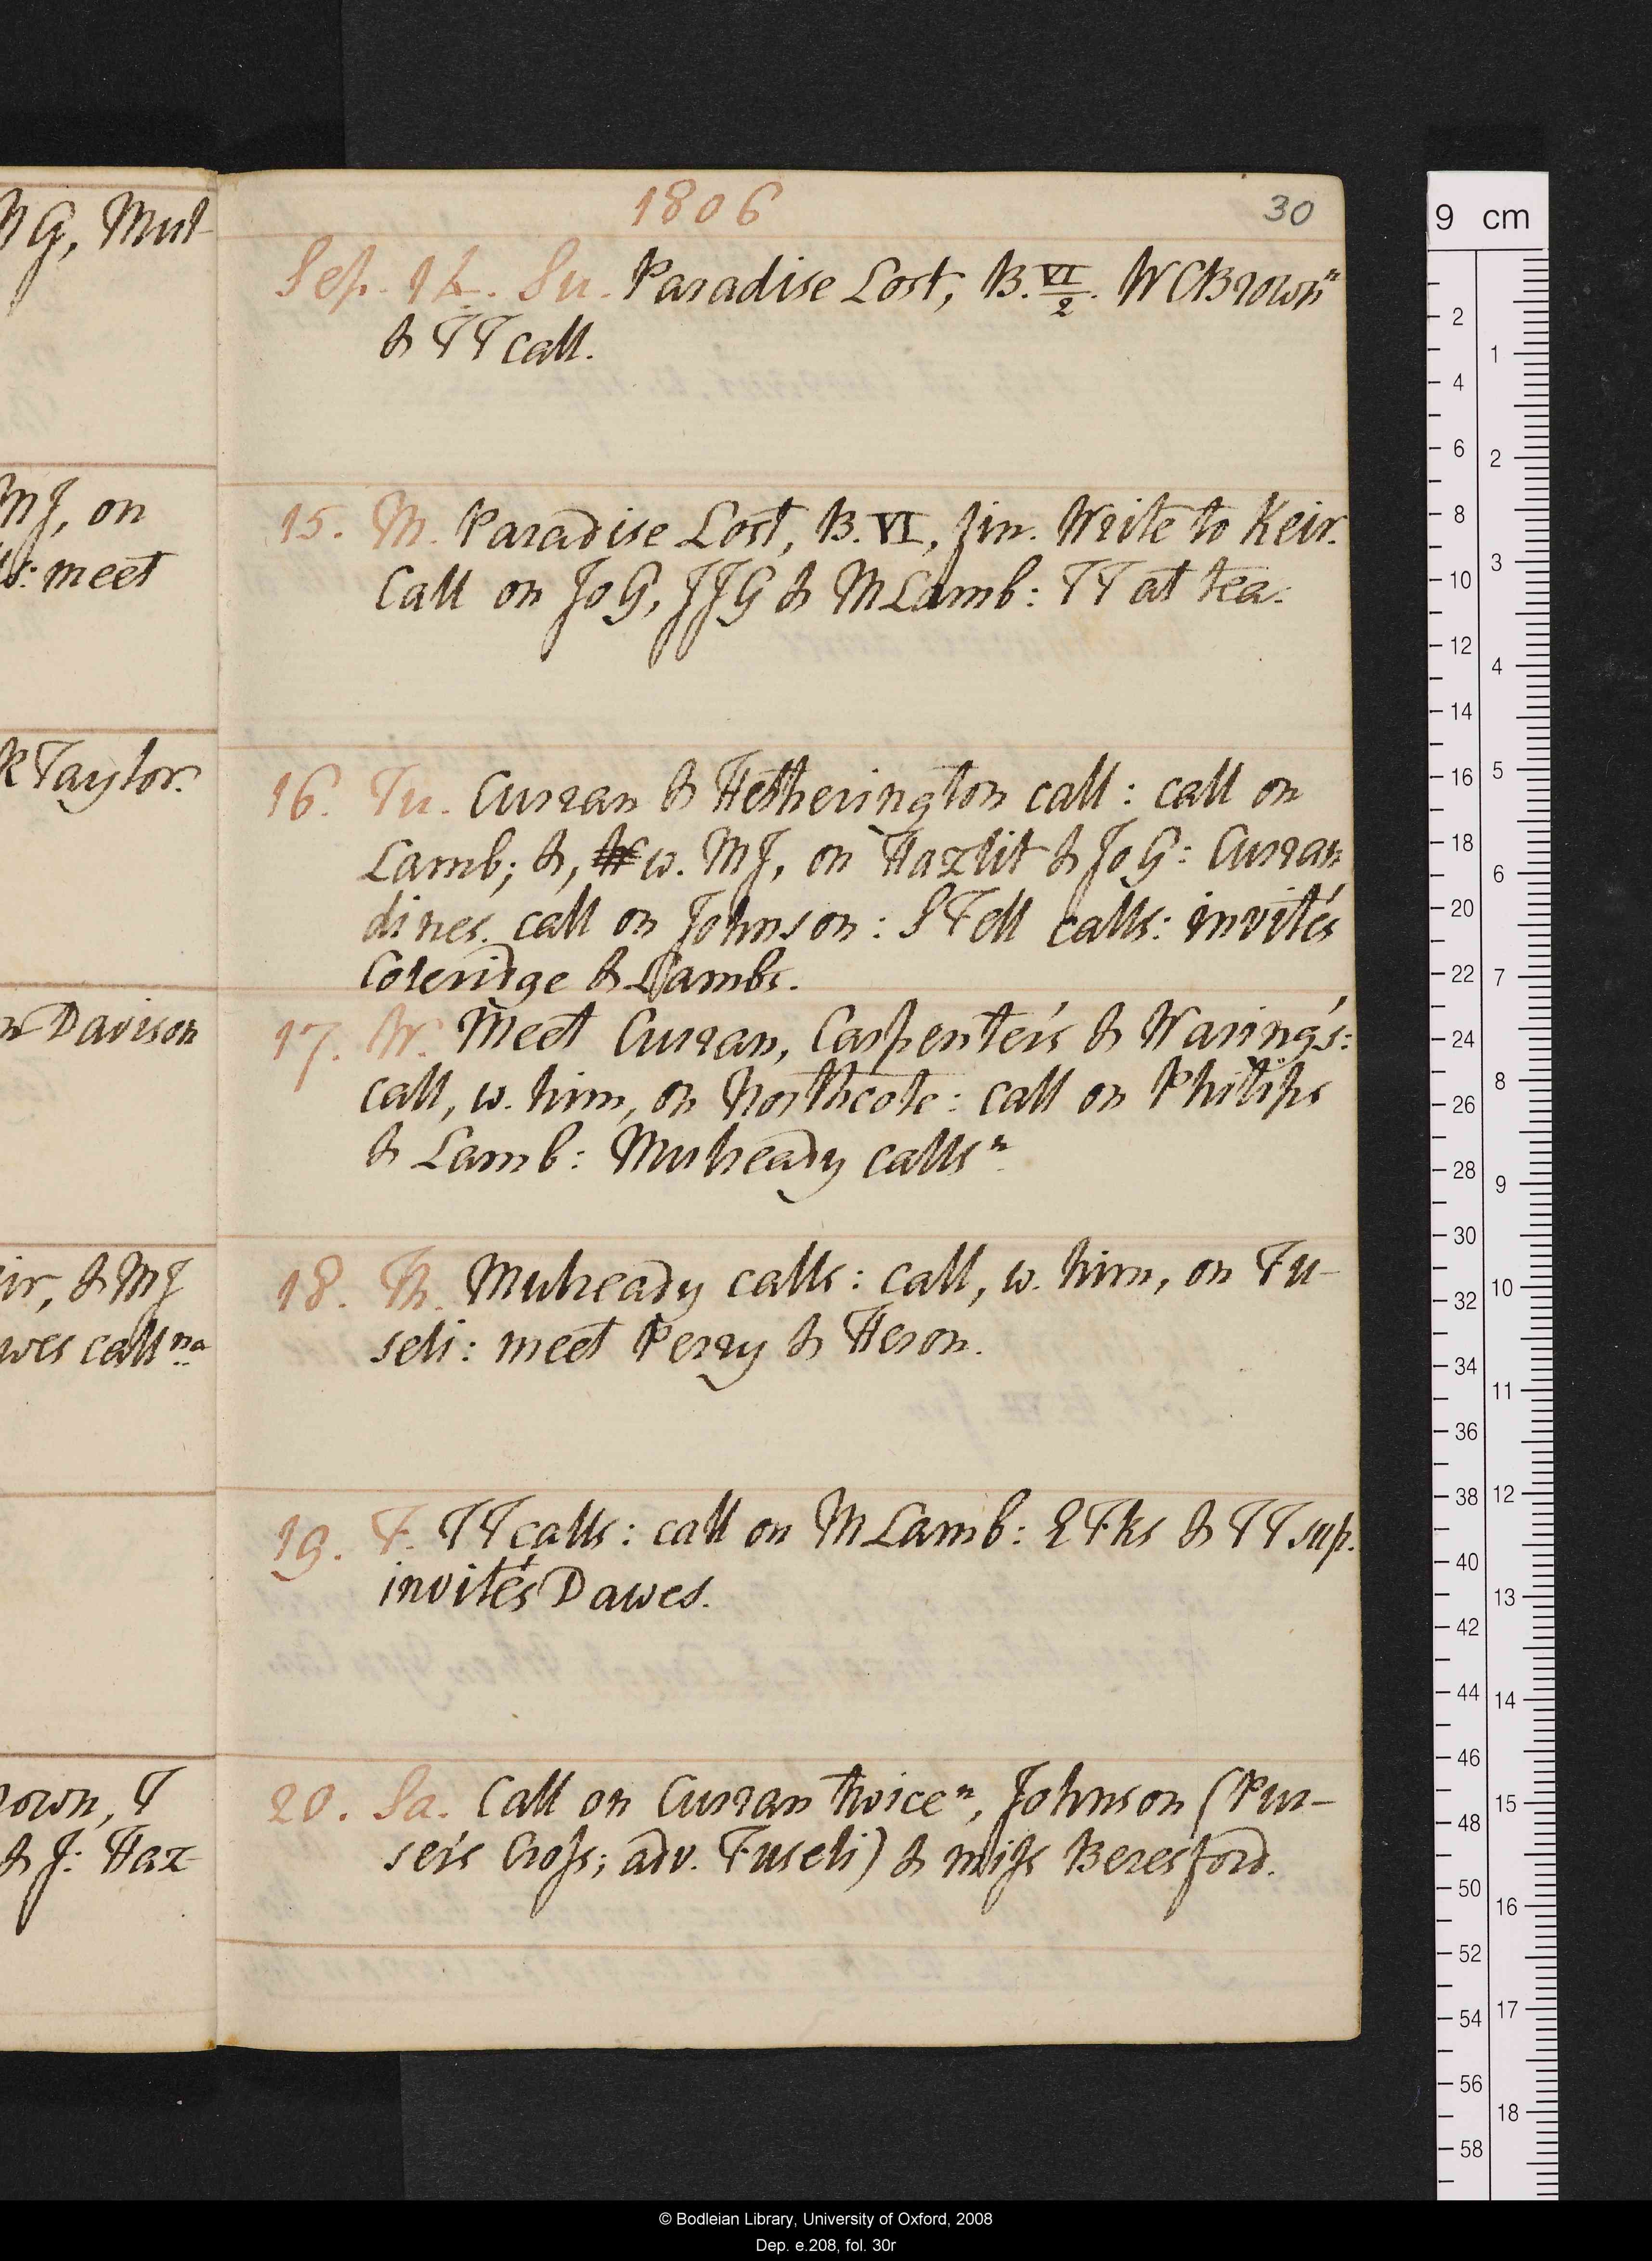 N G, Mul-
MJ, on
s: meet
R Taylor.
n Davison
ir, & MJ
wes call na
rown, T
& J: Haz-
1806
30
Sep. 14. Su. Paradise Lost, B. VI/2. W C Brown n
& TT call.
15. M. Paradise Lost, B. VI, fin. Write to Keir.
Call on JoG, JJG & M Lamb: TT at tea.
16. Tu. Curran & Hetherington call: call on
Lamb; &, w. MJ, on Hazlit & JoG: Curran
dines. call on Johnson: S Fell calls: invités
Coleridge & Lambs.
17. W. Meet Curran, Carpenter's & Waring's:
call, w. him, on Northcote: call on Philips
& Lamb: Mulready calls n.
18. Th. Mulready calls: call, w. him, on Fu-
seli: meet Perry & Heron.
19. F. TT calls: call on M Lamb: E Fks & TT sup.
invités Dawes.
20. Sa. Call on Curran twice n, Johnson (Pur-
ser's Cross; adv. Fuseli) & miss Beresford.
9 cm
2
4
6
8
10
12
14
16
18
20
22
24
26
28
30
32
34
36
38
40
42
44
46
48
50
52
54
56
58
1
2
3
4
5
6
7
8
9
10
11
12
13
14
15
16
17
18
© Bodleian Library, University of Oxford, 2008
Dep. e.208, fol. 30r